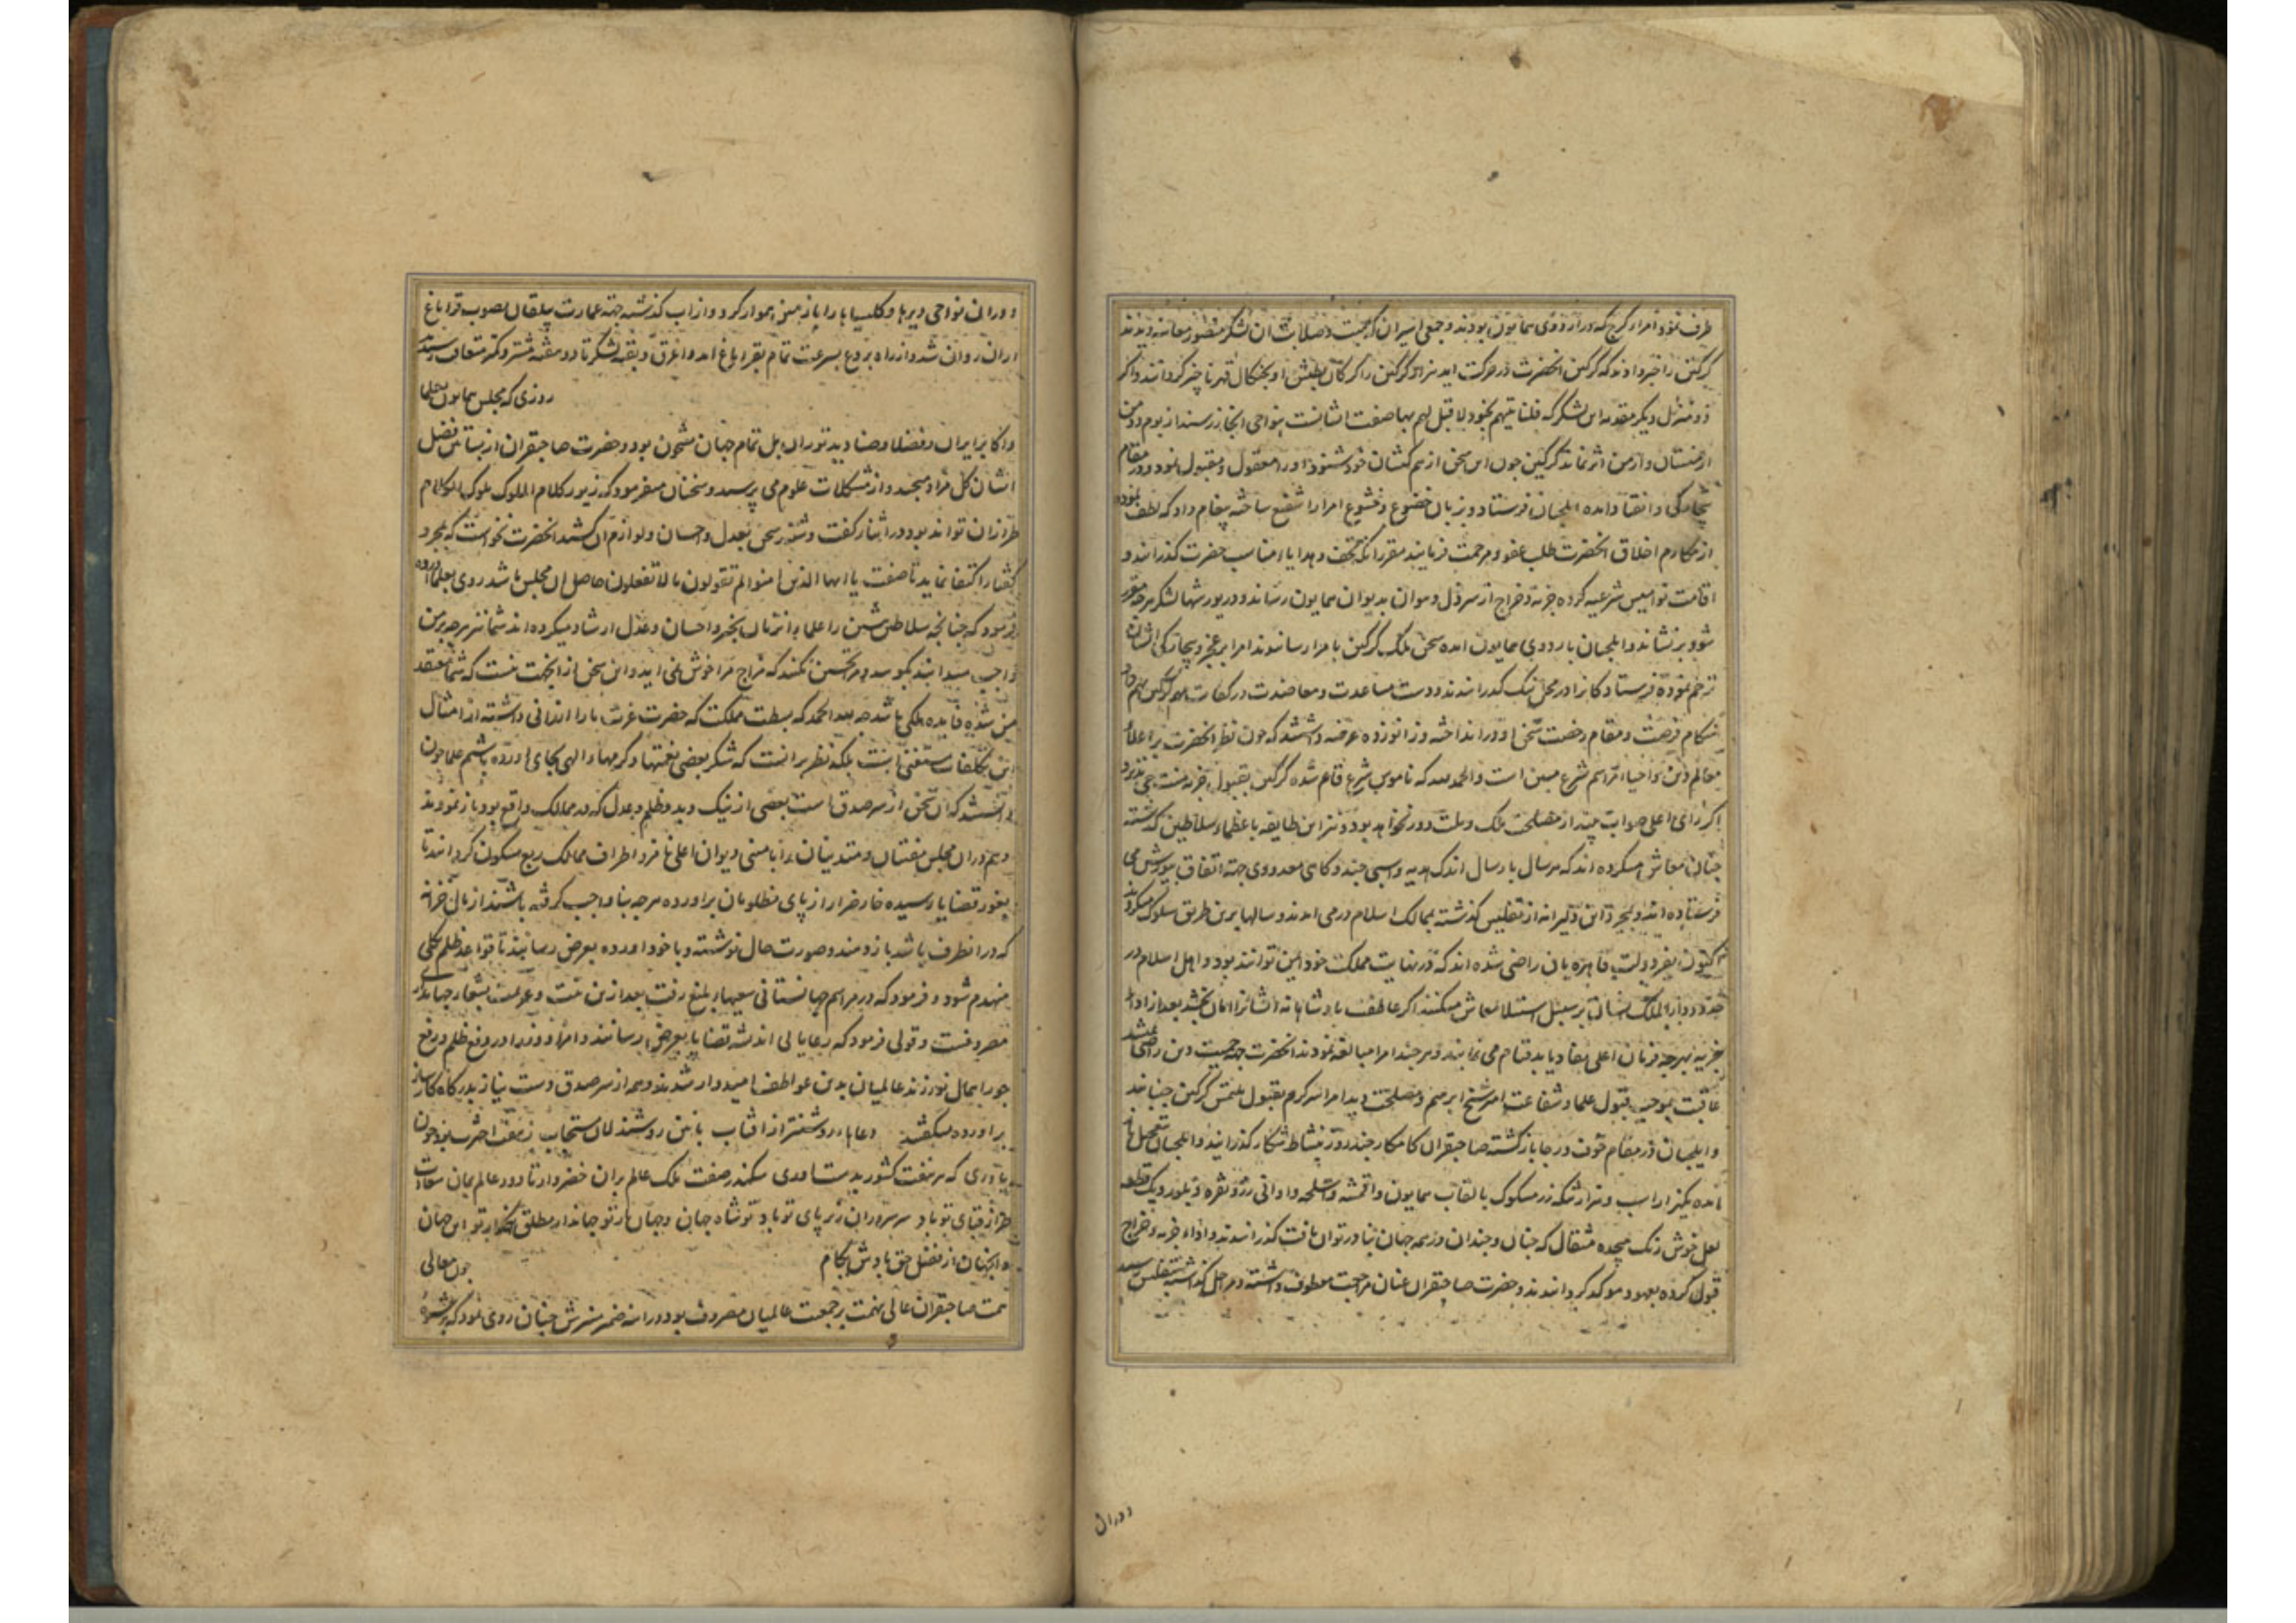 طرف نمود امراء کرج که در اردوی همایون بودند و جمعی اسیران که هیبت و صلابت ان لشکر منصور معاینه دیدند
کرکین را خبر دادند که کرکین انحضرت در حرکت اید هزار کرکین را کرکان بطش او بچنکال قهر ناچیز کردانند و اکر
دو منزل دیکر مقدمه این لشکر که فلناتینهم بجنود لا قبل لهم بها صفت ایشانست بنواحی ابخاز رسند از بوم و
ارمنستان و ارمن اثر نماند کرکین چون این سخن از هم کیشان خود شنود او را معقول و مقبول نمود و در مقام
بیچارکی و انقیاد امده ایلچیان فرستاد و بزبان خضوع و خشوع امرا را شفیع ساخته پیغام داد که لطف نموده
از مکارم اخلاق انحضرت طلب عفو و مرحمت فرمایند مقرر انکه تحف و هدایا مناسب حضرت کذرانند و
اقامت نوامیس شرعیه کرده جزیه و خراج از سر ذل و هوان بدیوان همایون رساند و در یورشها لشکر هرچه مقرر
شود برنشاند و ایلچیان باردوی همایون امده سخن ملک کرکین بامرا رسانیدند امرا بر عجز و بیچارکی ایشان
ترحم نموده فرستادکان را در محل نیک کذرانیدند و دست مساعدت و معاضدت در کفارت
هنکام فرصت و مقام رخصت سخن او در انداخته و زانو زده عرضه داشتند که چون نظر انحضرت بر اعلاء
معالم دین و احیاء مراسم شرع مبین است و الحمد لله که ناموس شرع قایم شده کرکین بقبول جزیه منت می پذیرد
اکر رای اعلی صواب بیند از مصلحت ملک و ملت دور نخواهد بود و نیز این طایفه با عظماء سلاطین کذشته
چنان معاش میکرده اند که هر سال بارسال اندک هدیه و اسبی چند و کاهی معدودی جهة اتفاق بیورش می
فرستاده اند و بمجرد این دلیرانه از تفلیس کذشته بممالک اسلام در می امدند و سالها برین طریق سلوک میکردند
اکنون بفر دولت قاهره بان راضی شده اند که در نهایت مملکت خود ایمن توانند بود و اهل اسلام در
حدود دار الملک ایشان بر سبیل استیلا معاش میکنند اکر عاطفت پادشاهانه ایشانرا امان بخشد بعد از اداء
جزیه بهرچه فرمان اعلی نفاد یابد قیام می نمایند و هر چند امرا مبالغه نمودند انحضرت جهة حمیت دین راضی نمیشد
عاقبت بموجب قبول علما و شفاعت امیر شیخ ابرهیم و مصلحت دید امرا سر کرم بقبول ملتمس کرکین جنبانید
و ایلچیان در مقام خوف و رجا بازکشته صاحبقران کامکار چند روز بنشاط شکار کذرانید و ایلچیان بتعجیل باز
امده یکهزار اسب و هزار تنکه زر مسکوک بالقاب همایون و اقمشه و اسلحه و اوانی زر و نقره و بلور و یک قطعه
لعل خوش رنک هیجده مثقال که چنان و چندان وزن همه جهان بنادر توان یافت کذرانیدند و اداء جزیه و خراج
قبول کرده بعهود موکد کردانیدند و حضرت صاحبقران عنان مراجعت معطوف داشته و مراحل کذاشته بتفلیس رسید
دوران
و در ان نواحی دیرها و کلیساها را با زمین هموار کرد و از اب کذشته جهة عمارت بیلقان بصوب قراباغ
اران روان شد و از راه بردع بسرعت تمام بقراباغ امد و اغرق و بقیه لشکر تا دو هفته بیشتر و کمتر متعاقب رسیدند
روزی که مجلس همایون بعلما
و اکابر ایران و فضلا و صنادید توران بل تمام جهان مشحون بود و حضرت صاحبقران از بساتین فضل
ایشان کل مراد میچید و از مشکلات علوم می پرسید و سخنان میفرمود که زیور کلام الملوک ملوک الکلام
طراز ان تواند بود در اثناء کفت و شنید سخن بعدل و احسان و لوازم ان کشید انحضرت نخواست که بمجرد
کفتار اکتفا نماید تا صفت یا ایها الذین امنوا لم تقولون ما لا تفعلون حاصل ان مجلس باشد روی بعلما اورده
فرمود که چنانچه سلاطین پیشین را علماء انزمان بخیر و احسان و عدل ارشاد میکرده اند شما نیز هرچه بر من
واجب میدانید بکویید و مرا تحسین نکنید که مزاج مرا خوش نمی اید و این سخن از انجهت نیست که شما معتقد
من شوید فایده ملکی باشد چه بحمد الله که بسطت مملکت که حضرت عزت بما ارزانی داشته از امثال
این تکلفات مستغنی است بلکه نظر بر انست که شکر بعضی نعمتها و کرمهاء الهی بجای اورده باشم علما چون
دانستند که ان سخن از سر صدق است بعضی از نیک و بد و ظلم و عدل که در ممالک واقع بود باز نمودند
و هم در ان مجلس مفتیان و متدینان را با امینی دیوان اعلی نامزد اطراف ممالک ربع مسکون کردانید تا
بغور قضایا رسیده خار ضرار از پای مظلومان براورده هرچه بناواجب کرفته باشند از مال خزانه
که در انطرف باشد باز دهند و صورت حال نوشته و با خود اورده بعرض رسانند تا قواعد ظلم بکلی
منهدم شود و فرمود که در مراسم جهانستانی سعیهاء بلیغ رفت بعد ازین همت و عزیمت بشعار جهانداری
مصروفست و قولی فرمود که رعایا بی اندیشه قضایا بعرض رسانند و امرا و وزرا در دفع ظلم و رفع
جور اهمال نورزند عالمیان بدین عواطف امیدوار شدند و همه از سر صدق دست نیاز بدرکاه کارساز
براورده میکفتند دعاهاء روشنتر از افتاب باین روشندلان مستجاب
یا داوری که هر هفت کشور بدست اوری سکندر صفت ملک عالم بران خضروار تا دور عالم بمان سعادت
طراز قبای تو باد سر سروران زیر پای تو باد تو شاه جهان و جهان از تو
وانجهان از فضل حق بادش بکام چون معالی
همت صاحبقران عالی نهمت بر جمعیت عالمیان مصروف بود در اینه ضمیر منیرش چنان روی نمود که